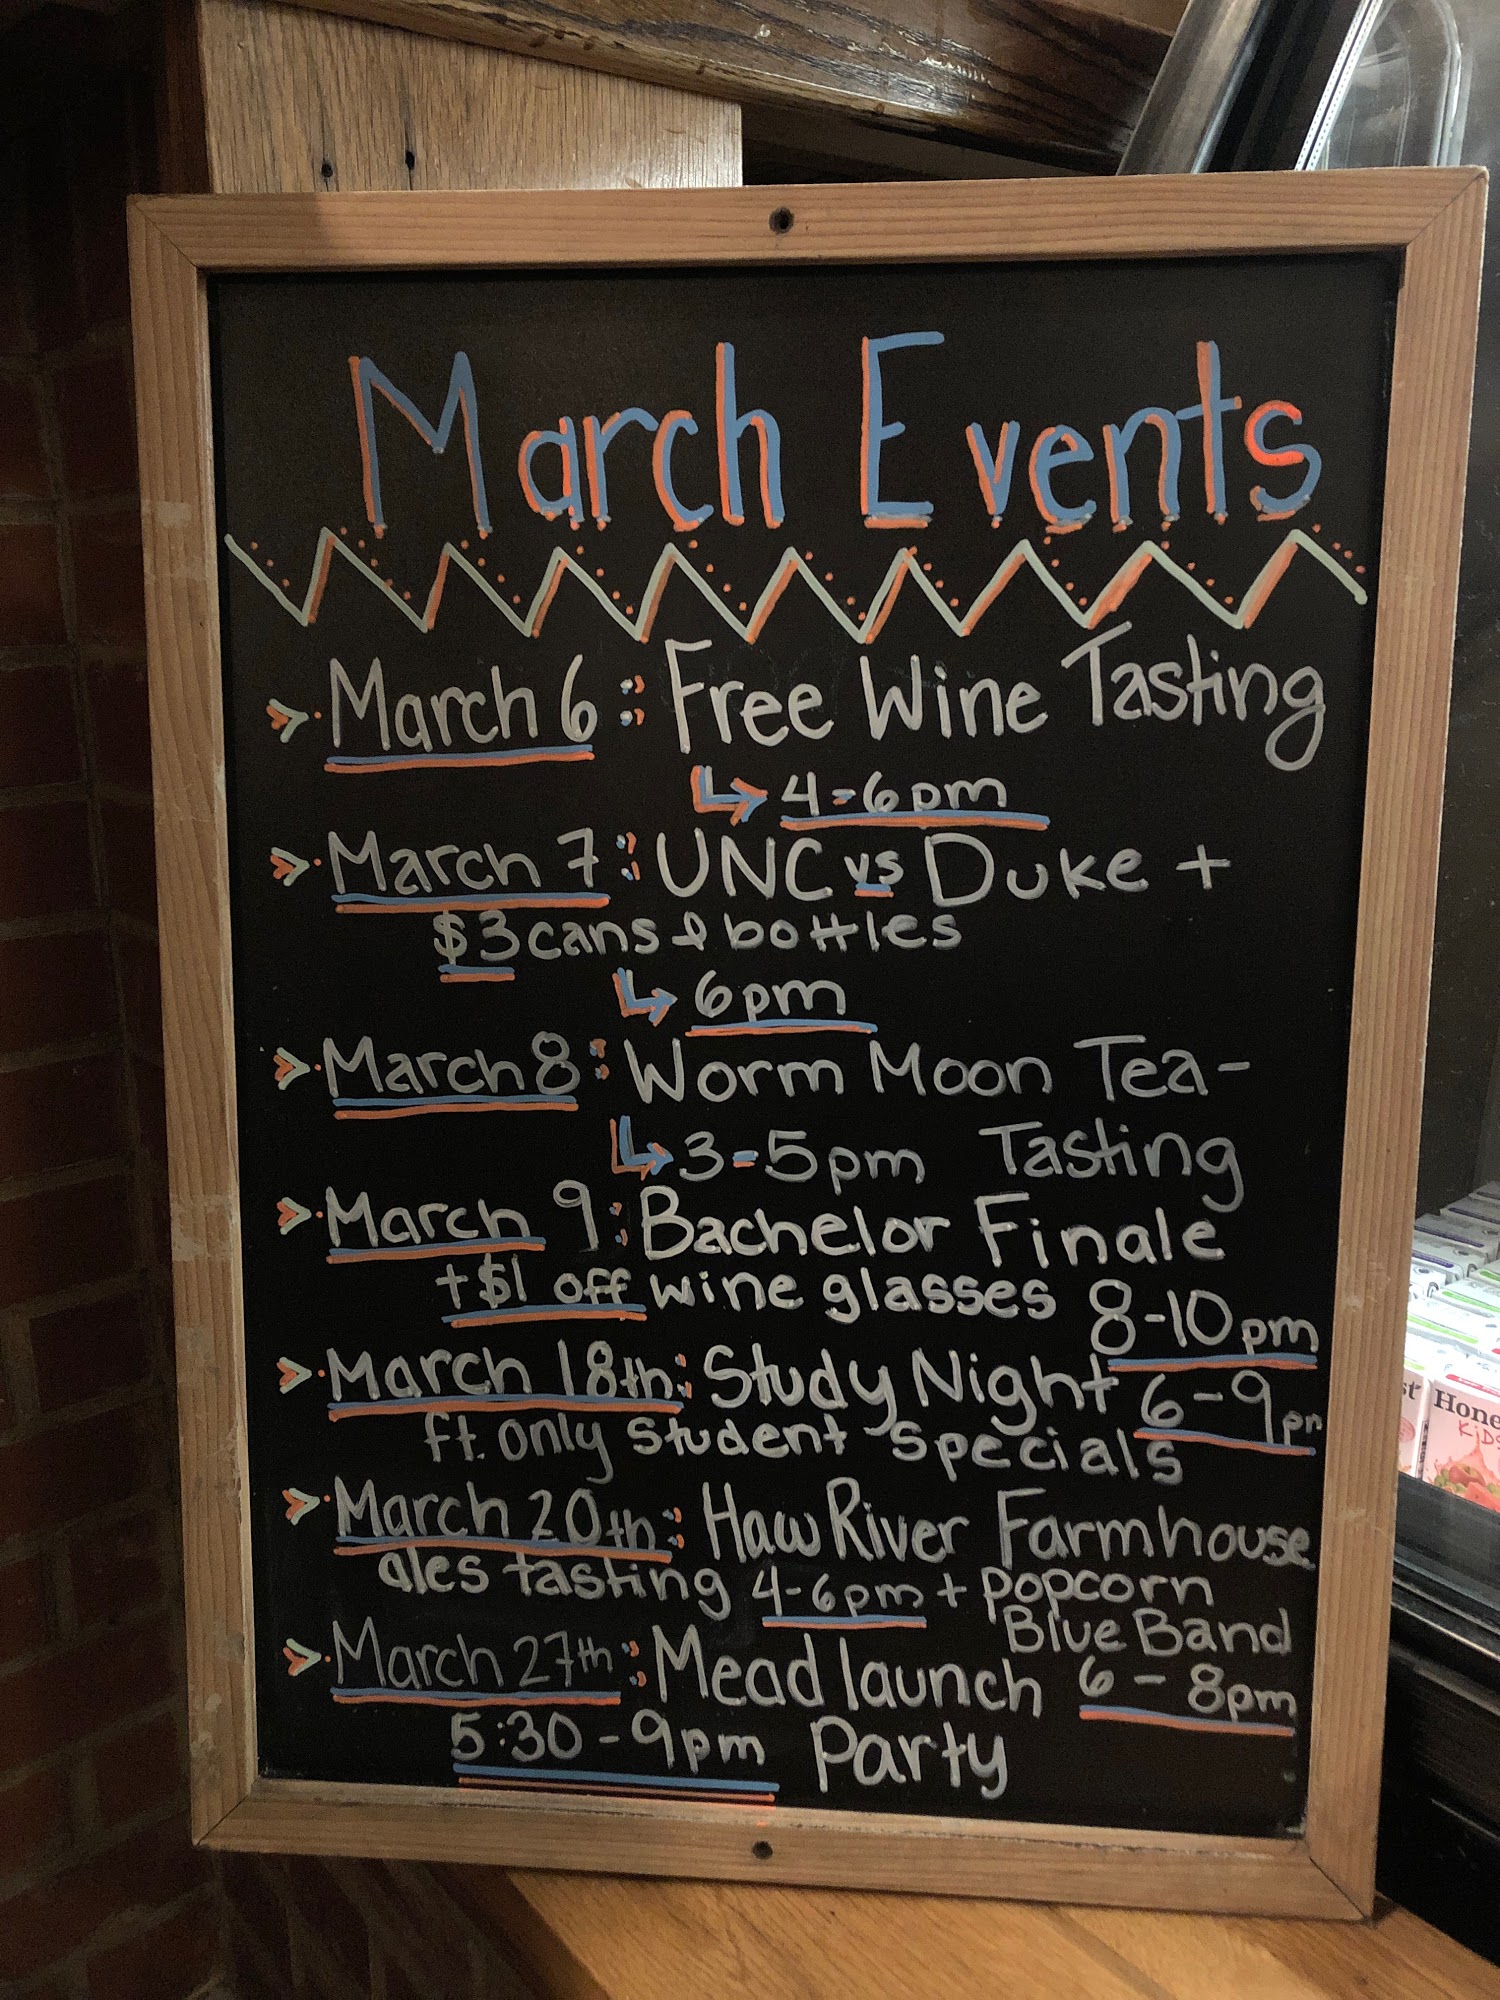 March Events
March 6: Free Wine Tasting
4-6pm
March 7: UNC vs Duke +
$3 cans & bottles
6pm
March 8: Worm Moon Tea-
3-5pm Tasting
March 9: Bachelor Finale
+$1 off wine glasses 8-10pm
March 18th: Study Night 6-9pm
ft. only student specials
March 20th: Haw River Farmhouse
ales tasting 4-6pm + popcorn
Blue Band
March 27th: Mead launch 6-8pm
5:30-9pm Party
Hone
KiDS